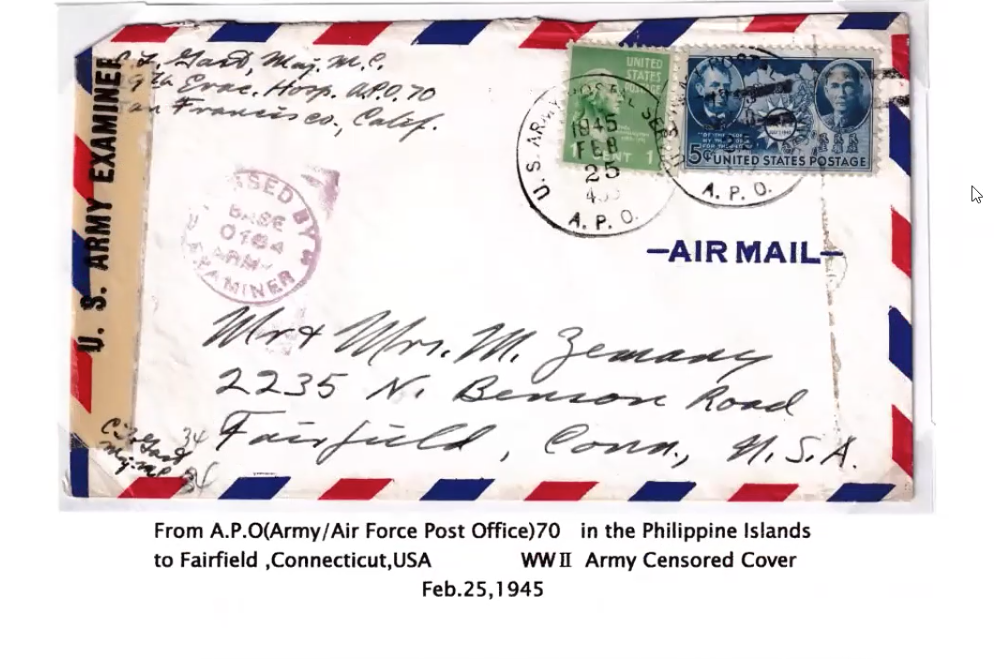 Gard, Maj. M.C.
Evac. Hosp. A.P.O. 70
San Francisco, Calif.
U. S. ARMY EXAMINER
PASSED BY
BASE
0164
ARMY
EXAMINER
U.S. ARMY POSTAL
1945
FEB
25
A.P.O.
UNITED
STATES
POSTAGE
1 CENT 1
5¢ UNITED STATES POSTAGE
A.P.O.
—AIR MAIL—
Mr & Mrs. M. Zemany
2235 N. Benson Road
Fairfield, Conn., U.S.A.
Gard 34
Maj. MC
From A.P.O(Army/Air Force Post Office)70 in the Philippine Islands
to Fairfield ,Connecticut,USA WWⅡ Army Censored Cover
Feb.25,1945